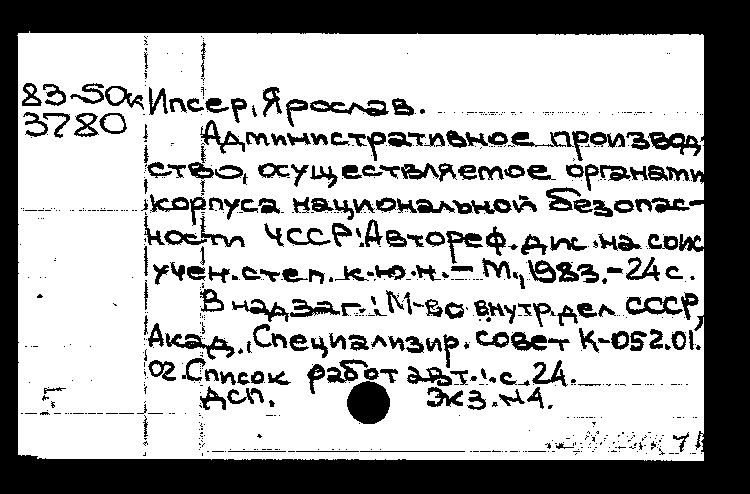 83-50к Ипсер, Ярослав.
3780
Административное производ-
ство, осуществляемое органами
корпуса национальной безопас-
ности ЧССР: Автореф. дис. на соиск.
учен. степ. к.ю.н. – М., 1983. – 24 с.
В надзаг.: М-во внутр. дел СССР,
Акад., Специализир. совет К-052.01.
02. Список работ авт.: с. 24.
ДСП. Экз. №4.